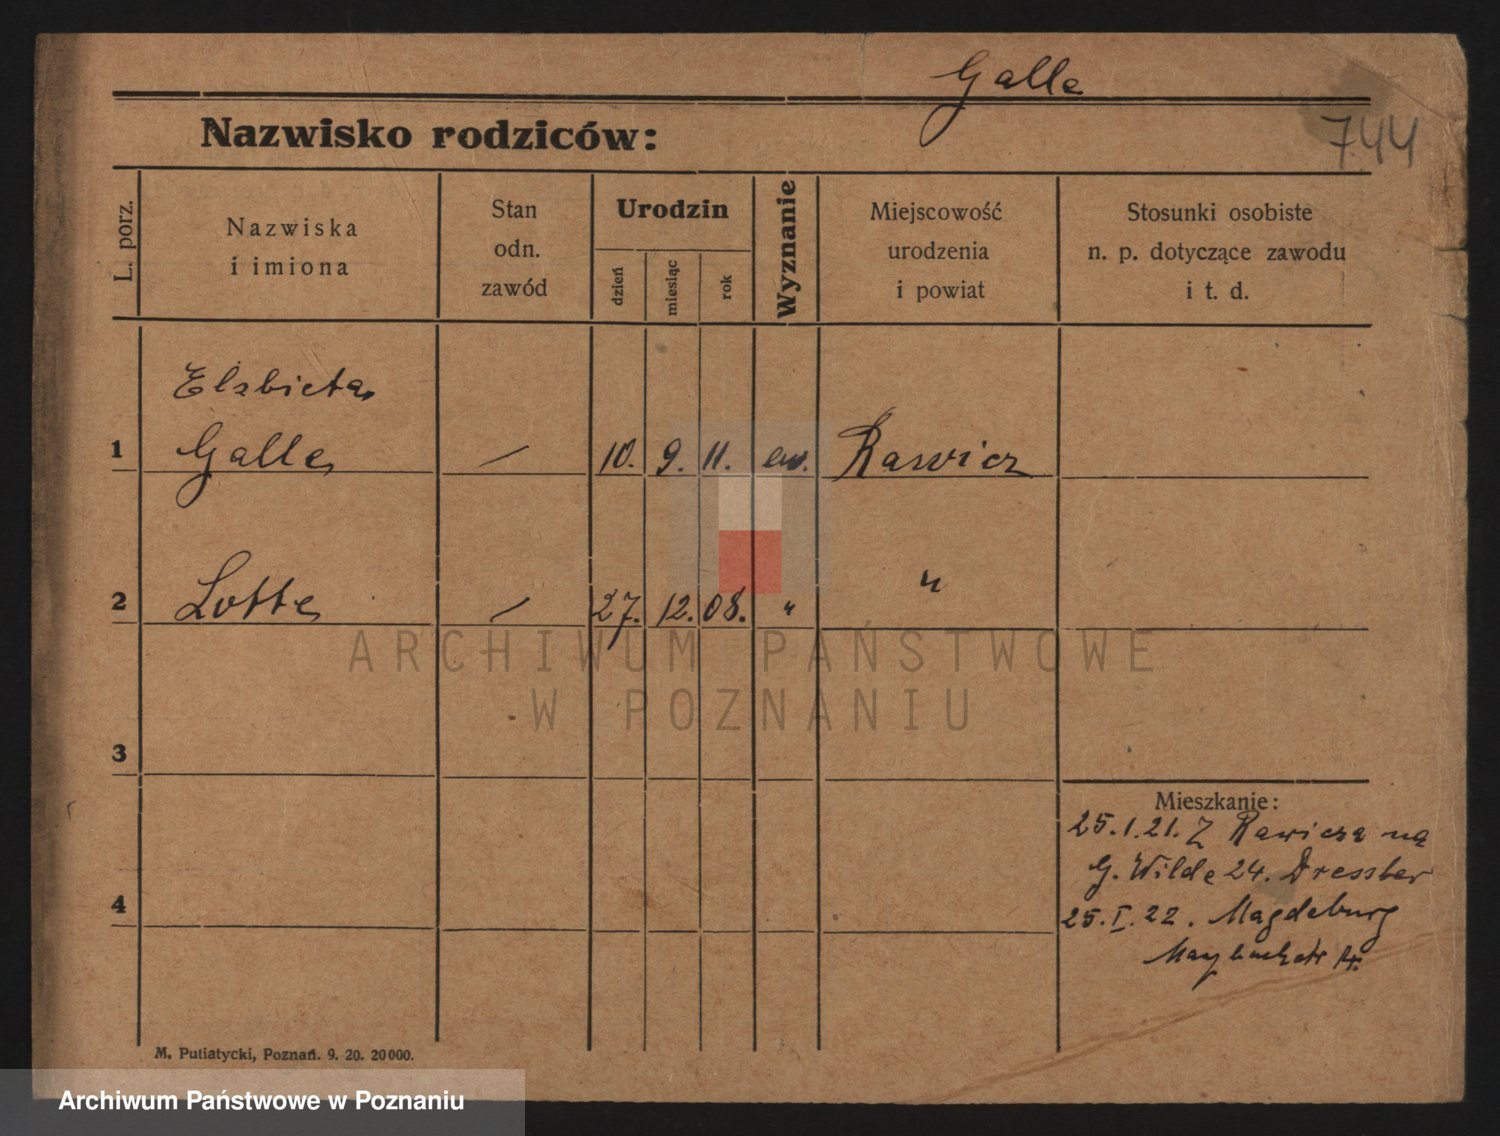 Galle
Nazwisko rodziców:
744
L. porz.
Nazwiska
i imiona
Stan
odn.
zawód
Urodzin
dzień
miesiąc
rok
Wyznanie
Miejscowość
urodzenia
i powiat
Stosunki osobiste
n. p. dotyczące zawodu
i t. d.
Elzbieta
1 Galle — 10. 9. 11. ew. Rawicz
2 Lotte — 27. 12. 08. " "
ARCHIWUM PAŃSTWOWE
W POZNANIU
3
Mieszkanie:
25.1.21. Z Rawicza na
G. Wilde 24. Dressler
4
25.I.22. Magdeburg
M. Putiatycki, Poznań. 9. 20. 20000.
Archiwum Państwowe w Poznaniu